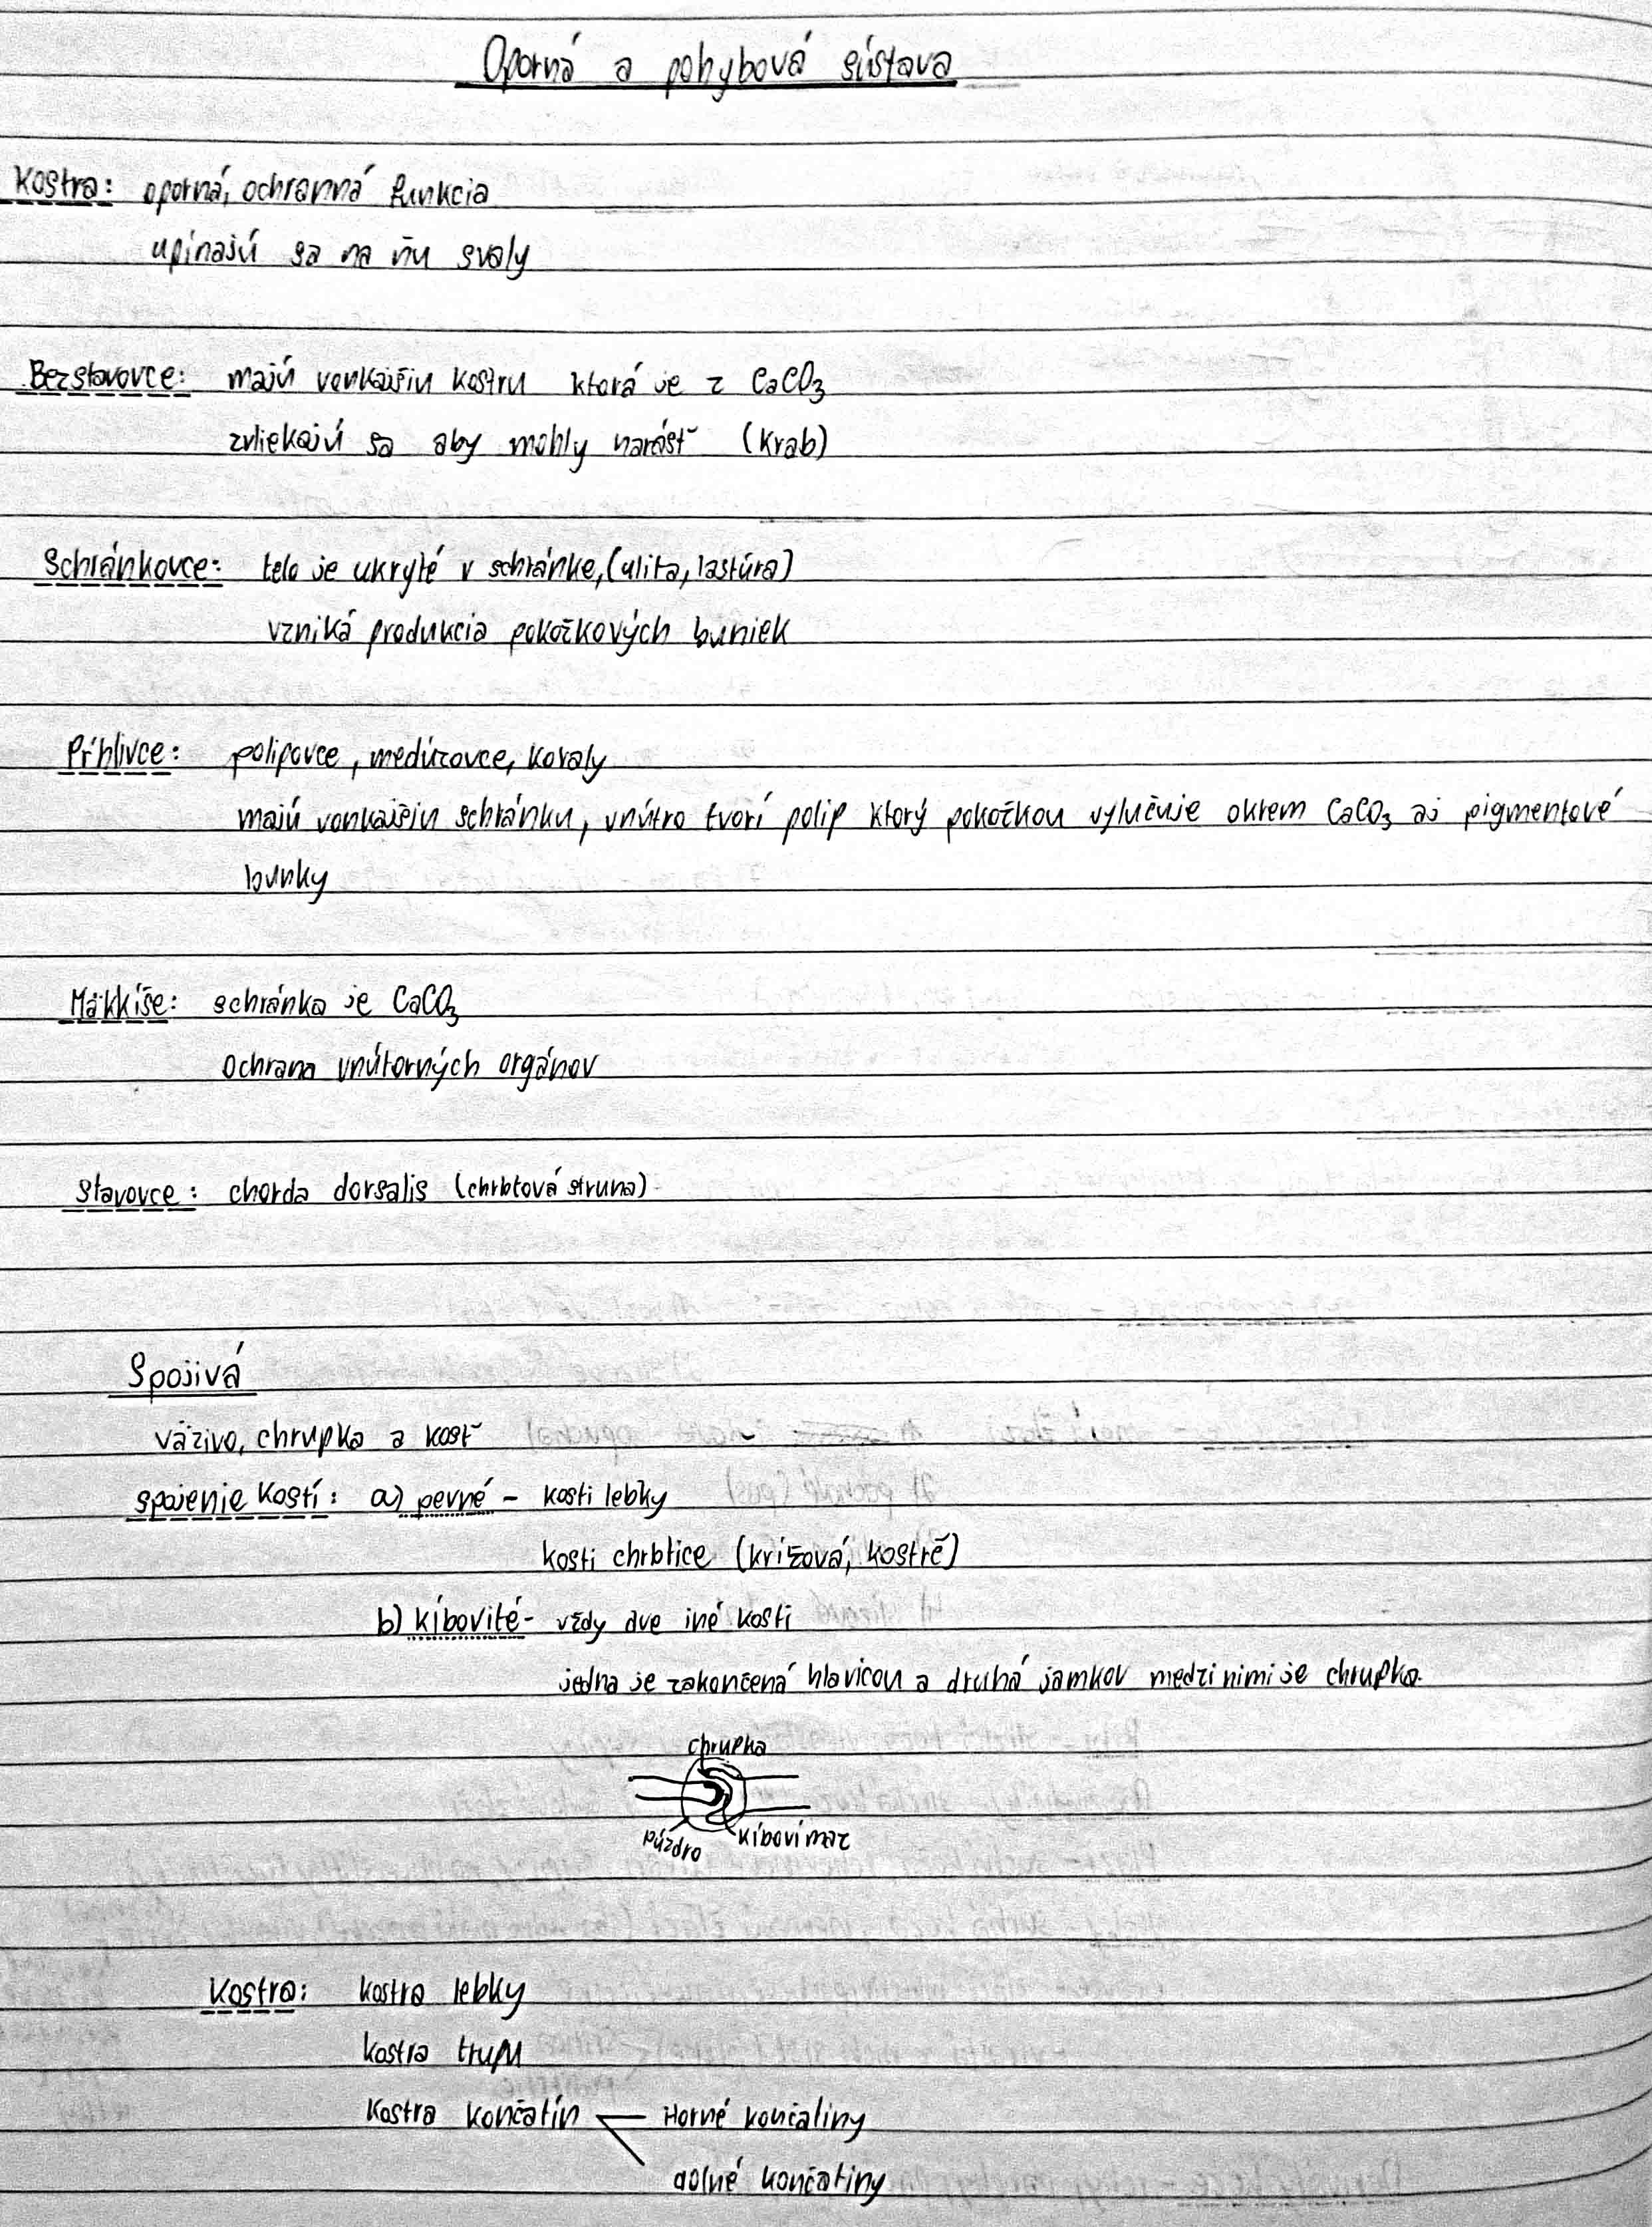 Oporná a pohybová sústava
Kostra: oporná, ochranná funkcia
upínajú sa na ňu svaly
Bezstavovce: majú vonkajšiu kostru ktorá je z CaCO3
zvliekajú sa aby mohly narásť (Krab)
Schránkovce: telo je ukryté v schránke, (ulita, lastúra)
vzniká produkcia pokožkových buniek
Pŕhlivce: polipovce, medúzovce, koraly
majú vonkajšiu schránku, vnútro tvorí polip ktorý pokožkou vylučuje okrem CaCO3 aj pigmentové
bunky
Mäkkíše: schránka je CaCO3
Ochrana vnútorných orgánov
Stavovce: chorda dorsalis (chrbtová struna)
Spojivá
väzivo, chrupka a kosť
spojenie Kostí: a) pevné - kosti lebky
kosti chrbtice (krížová, kostrč)
b) kĺbovité - vždy dve iné kosti
jedna je zakončená hlavicou a druhá jamkov medzi nimi je chrupka.
chrupka
púzdro kĺboví maz
Kostra: kostra lebky
kostra trupu
Kostra končatín Horné končatiny
dolné končatiny